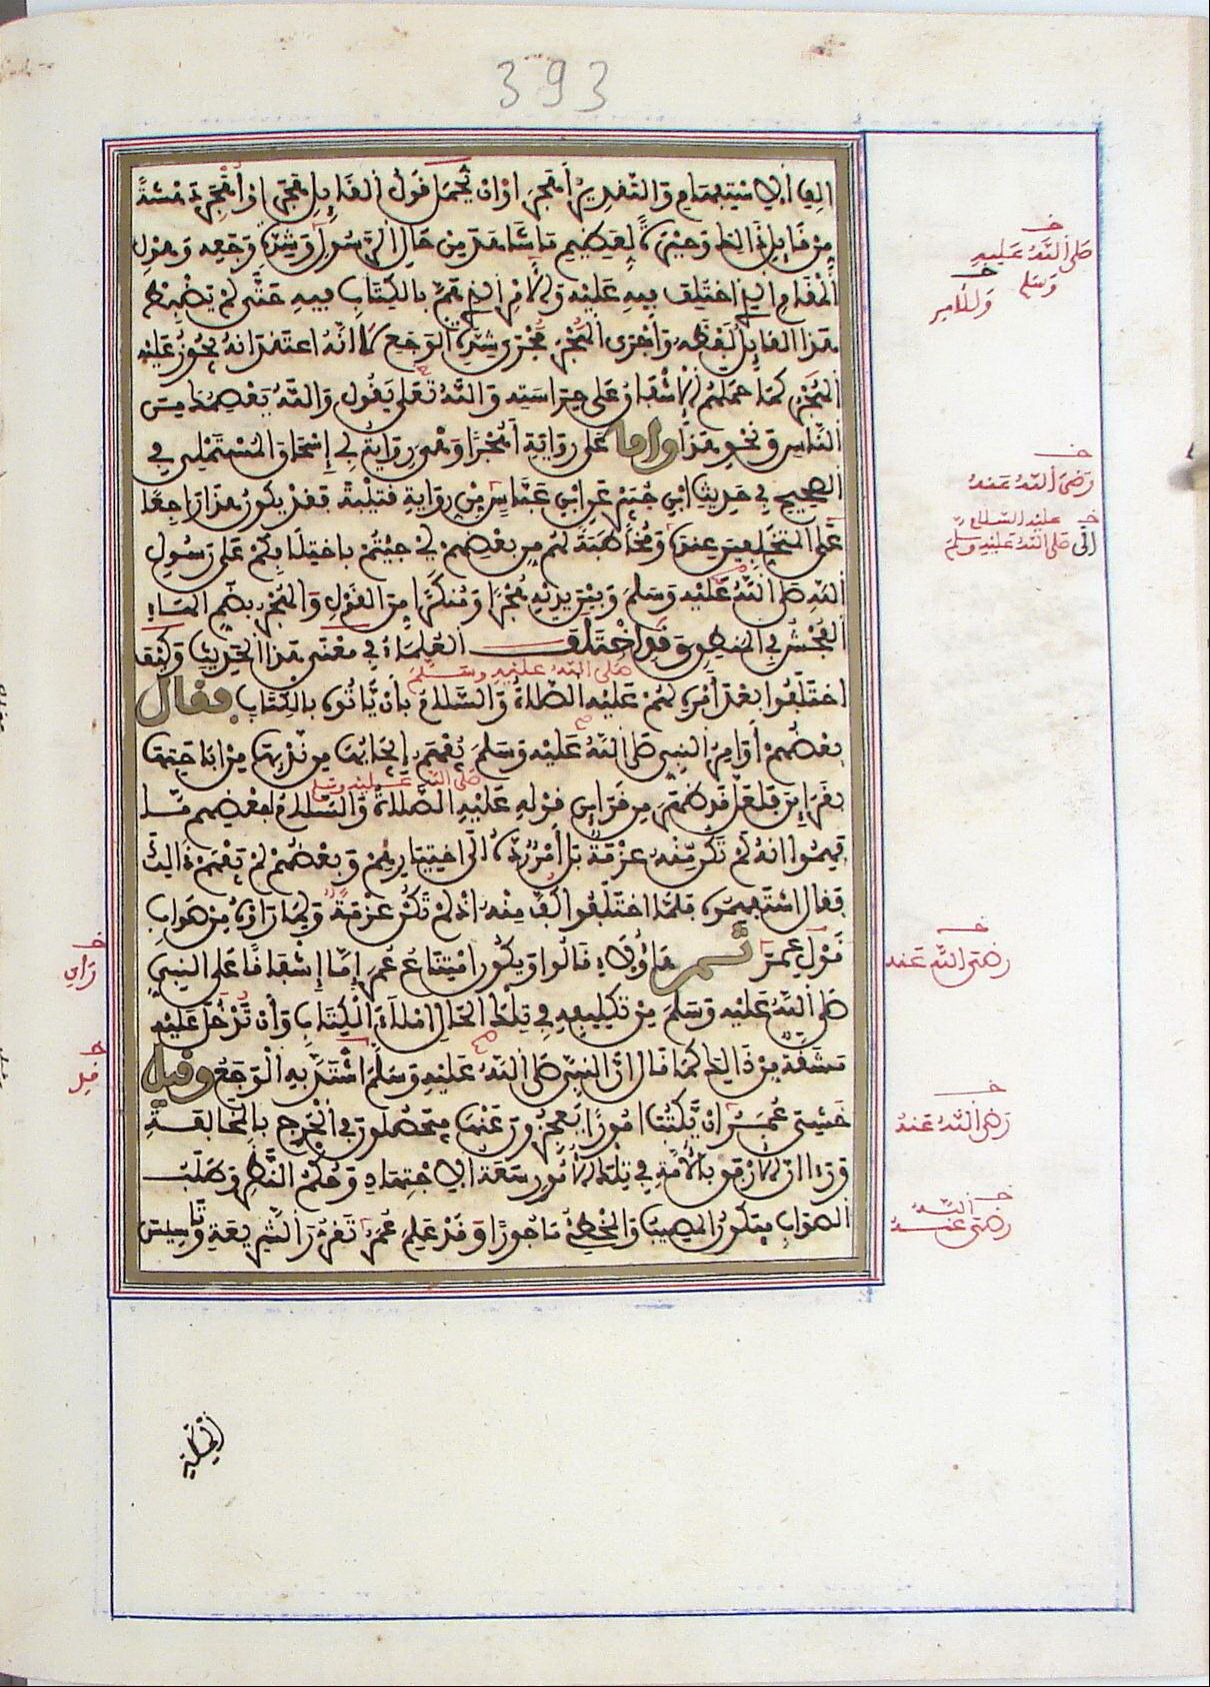 393
ألف الاستفهام والتقدير أهجر أو أن يحمل قول القايل هجر أو أهجر دهشة
من قايل ذالك وحيرة لعظيم ما شاهد من حال الرسول وشدة وجعه وهول
المقام الذي اختلف فيه عليه والامر الذي هم بالكتاب فيه حتى لم يضبط
هذا القايل لفظه وأجرى الهجر مجرى شدة الوجع لا انه اعتقد انه يجوز عليه
الهجر كما حملهم الاشفاق على حراسته والله تعلى يقول والله يعصمك من
الناس ونحو هذا واما على رواية أهجرا وهي رواية أبي إسحاق المستملي في
الصحيح في حديث ابن جبير عن ابن عباس من رواية قتيبة فقد يكون هذا راجعا
على المختلفين عنده ومخاطبة لهم من بعضهم أي جيتم باختلافكم على رسول
الله صلى الله عليه وسلم وبين يديه هجرا ومنكرا من القول والهجر بضم الهاء
الفحش في المنطق وقد اختلف العلماء في معنى هذا الحديث وكيف
صلى الله عليه وسلم
اختلفوا بعد أمره لهم عليه الصلاة والسلام بأن يأتوه بالكتاب فقال
بعضهم أوامر النبي صلى الله عليه وسلم يفهم إيجابها من ندبها من إباحتها
صلى الله عليه وسلم
بقراين فلعل قد ظهر من قراين قوله عليه الصلاة والسلام لبعضهم ما
فهموا انه لم تكن منه عزمة بل أمر رده الى اختيارهم وبعضهم لم يفهم ذالك
فقال استفهموه فلما اختلفوا كف عنه اذ لم تكن عزمة ولما رأوه من صواب
قول عمر ثم هاؤلاء قالوا ويكون امتناع عمر إما إشفاقا على النبي
صلى الله عليه وسلم من تكليفه في تلك الحال املاء الكتاب وأن تدخل عليه
مشقة من ذالك كما قال ان النبي صلى الله عليه وسلم اشتد به الوجع وقيل
خشي عمر ان يكتب امورا يعجزون عنها فيحصلون في الحرج بالمخالفة
ورءا ان الارفق بالأمة في تلك الأمور سعة الاجتهاد وحكم النظر وطلب
الصواب فيكون المصيب والمخطئ ماجورا وقد علم عمر تقرر الشريعة وتاسيس
الملة
خ
صلى الله عليه
وسلم
خ
وللامر
خ
رضي الله عنه
خ عليه السلام
الى صلى الله عليه وسلم
خ
رضي الله عنه
خ
رضي الله عنه
خ
رضي الله عنه
خ
رأى
خ
قيل